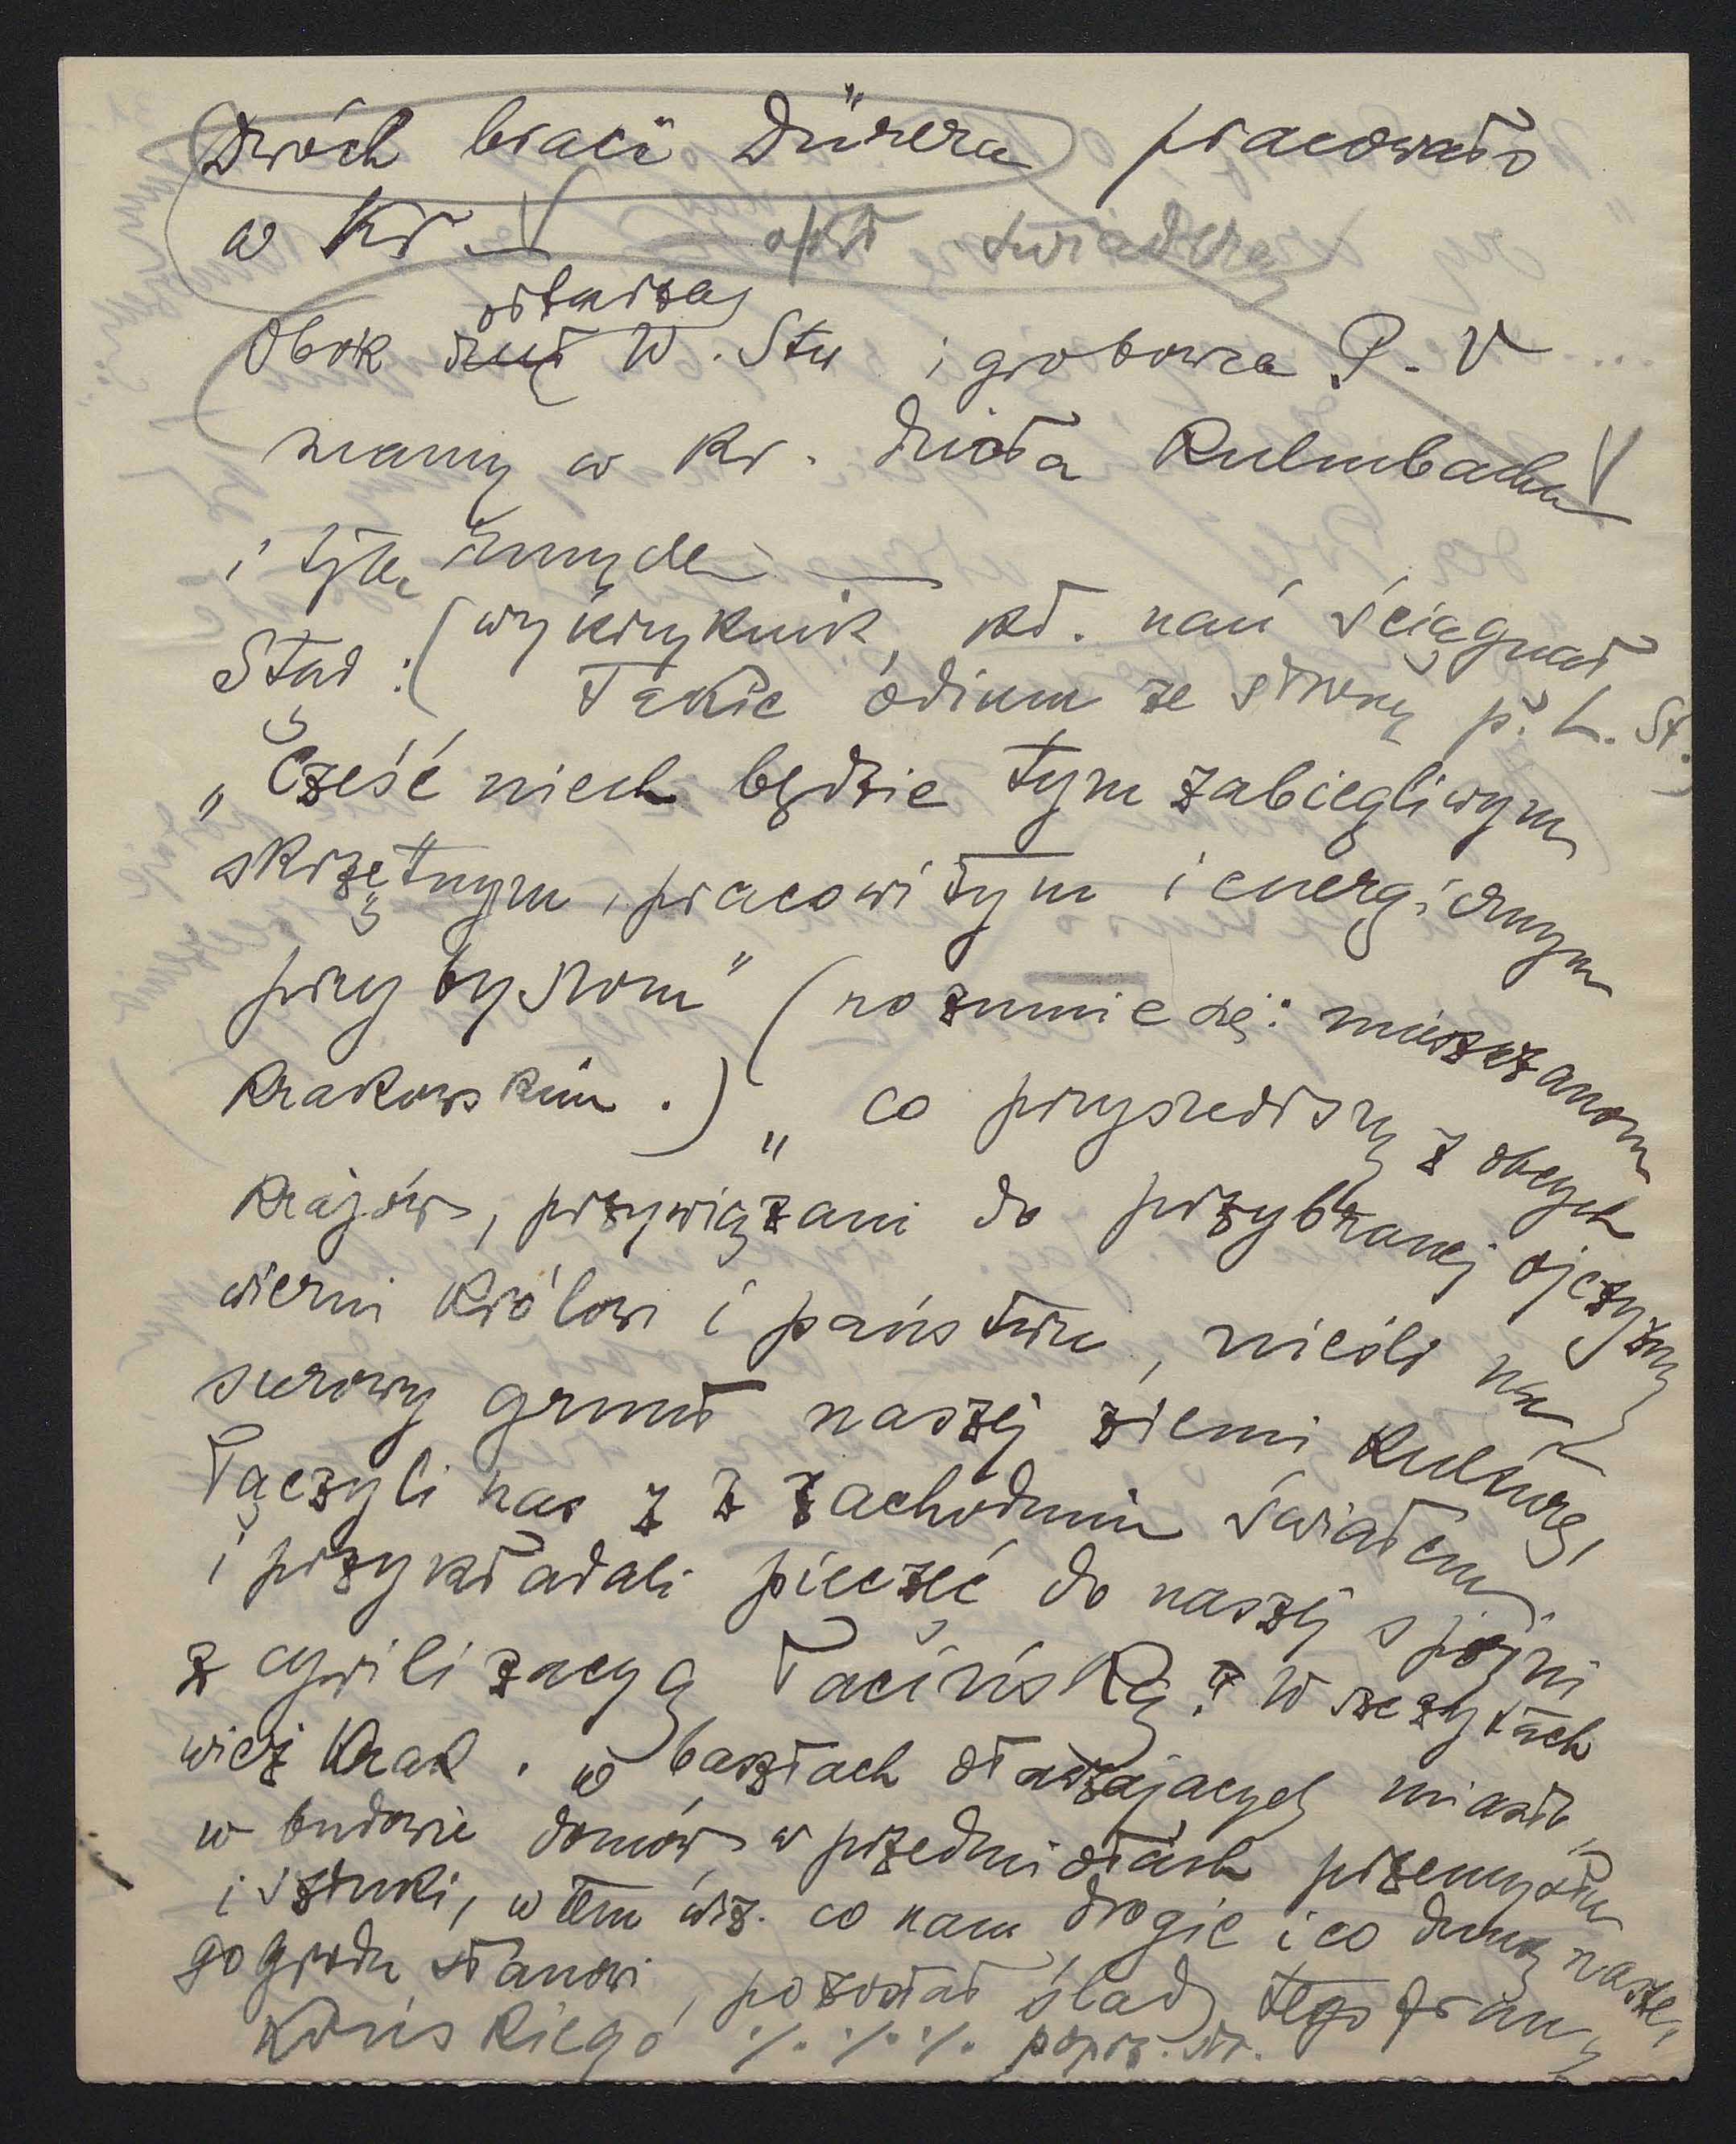 Dwóch braci Dürera pracowało
w Kr —
ołtarza
Obok W. Stw i grobowca P. V
mamy w Kr. dzieła Kulmbacha
i tylu innych —
Stad : (wykrzyknik, kt. nań ściągnął
takie odium ze strony p. L. St.)
„Cześć niech będzie tym zabiegliwym
skrzętnym, pracowitym i energicznym
przybyszom" (rozumie się: mieszczanom
krakowskim.) „co przyszedłszy z obcych
krajów, przywiązani do przybranej ojczyzny
wierni królowi i państwu, nieśli na
surowy grunt naszej ziemi kulturę,
łączyli nas z z zachodnim światem
i przykładali pieczęć do naszej spójni
z cywilizacyą łacińską. W szczytach
wież Krak. w basztach otaczających miasto,
w budowie domów w przedmiotach przemysłu
i sztuki, w tem wsz. co nam drogie i co dumę nasze-
go grodu stanowi, pozostał ślad tego fran-
końskiego ·/. ·/. ·/. poprz. str.